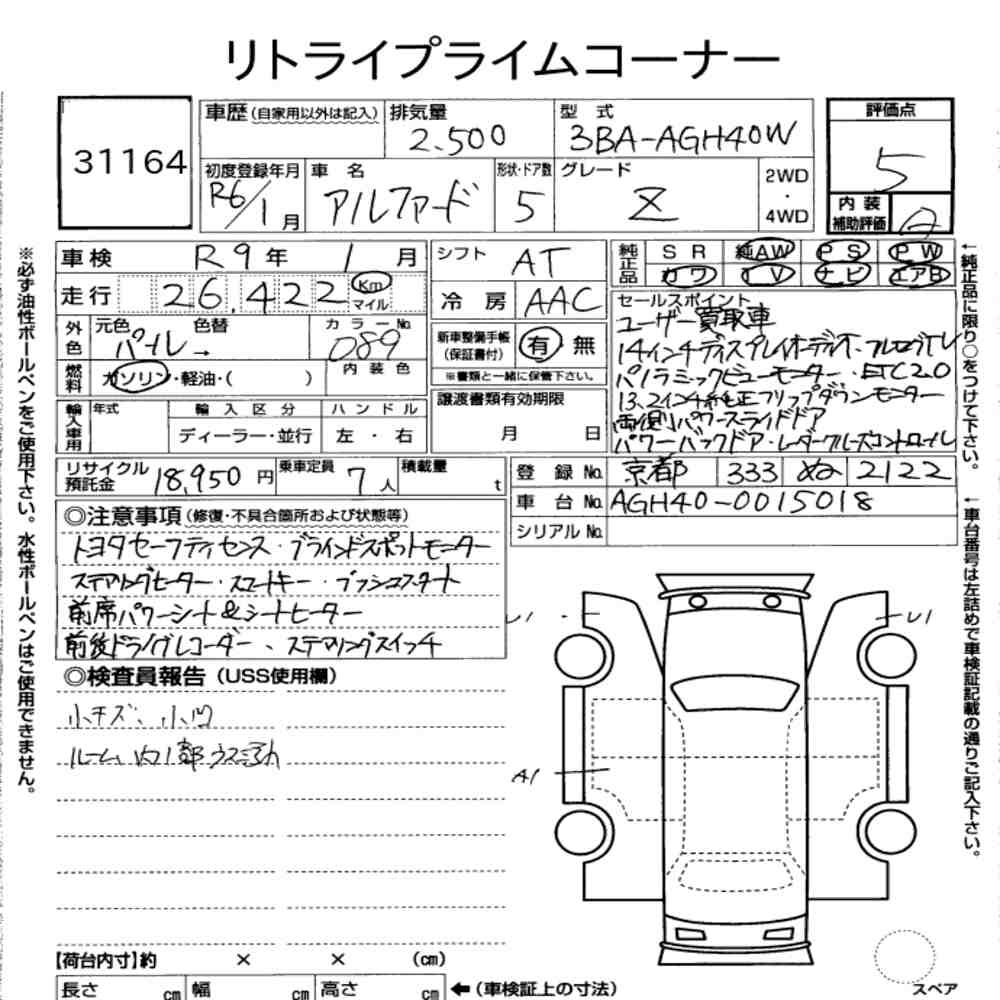 リトライプライムコーナー
31164
車歴(自家用以外は記入)
排気量
2.500
型式
3BA-AGH40W
評価点
5
初度登録年月
R6/1月
車名
アルファード
形状・ドア数
5
グレード
Z
2WD
・
4WD
内装
補助評価
※必ず油性ボールペンをご使用下さい。水性ボールペンはご使用できません。
車検 R9年 1月
走行 26,422 Km
マイル
外色
元色 色替
パール→
カラーNo.
089
燃料
ガソリン・軽油・( )
内装色
輸入車用
年式
輸入区分
ディーラー・並行
ハンドル
左・右
シフト AT
冷房 AAC
新車整備手帳
(保証書付)
有 無
※書類と一緒に保管下さい。
譲渡書類有効期限
月 日
純正品
SR 純AW PS PW
カワ TV ナビ エアB
セールスポイント
ユーザー買取車
14インチディスプレイオーディオ・フルセグTV
パノラミックビューモニター・ETC2.0
13.2インチ純正フリップダウンモニター
両側パワースライドドア
パワーバックドア・レーダークルーズコントロール
←純正品に限り○をつけて下さい。
リサイクル
預託金
18,950円
乗車定員
7人
積載量
t
登録No. 京都 333 ぬ 2122
車台No. AGH40-0015018
シリアルNo.
←車台番号は左詰めで車検証記載の通りご記入下さい。
◎注意事項(修復・不具合箇所および状態等)
トヨタセーフティセンス・ブラインドスポットモニター
ステアリングヒーター・スマートキー・プッシュスタート
前席パワーシート&シートヒーター
前後ドライブレコーダー、ステアリングスイッチ
◎検査員報告(USS使用欄)
小キズ、小凹
ルーム内
U1
U1
A1
【荷台内寸】約 × × (cm)
長さ cm 幅 cm 高さ cm
←(車検証上の寸法)
スペア